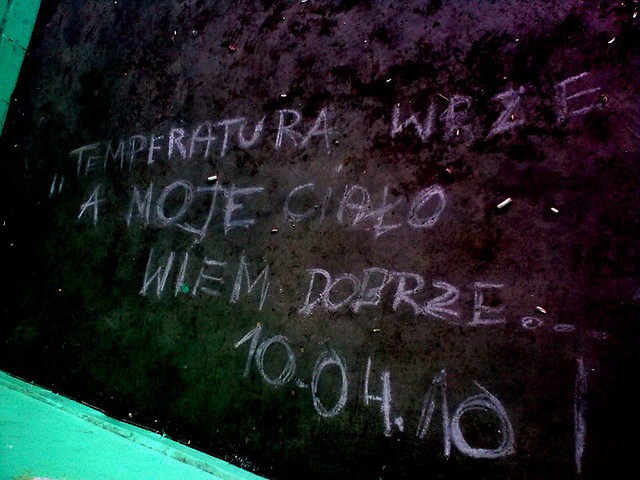 "TEMPERATURA WRZE
A MOJE CIAŁO
WIEM DOBRZE...
10.04.10